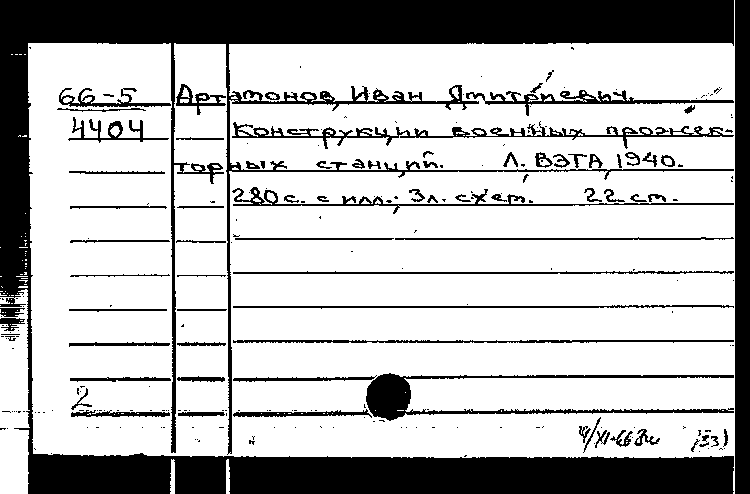 66-5 Артамонов, Иван Дмитриевич.
4404 Конструкции военных прожек-
торных станций. Л., ВЭТА, 1940.
280 с. с илл.; 3 л. схем. 22 см.
2